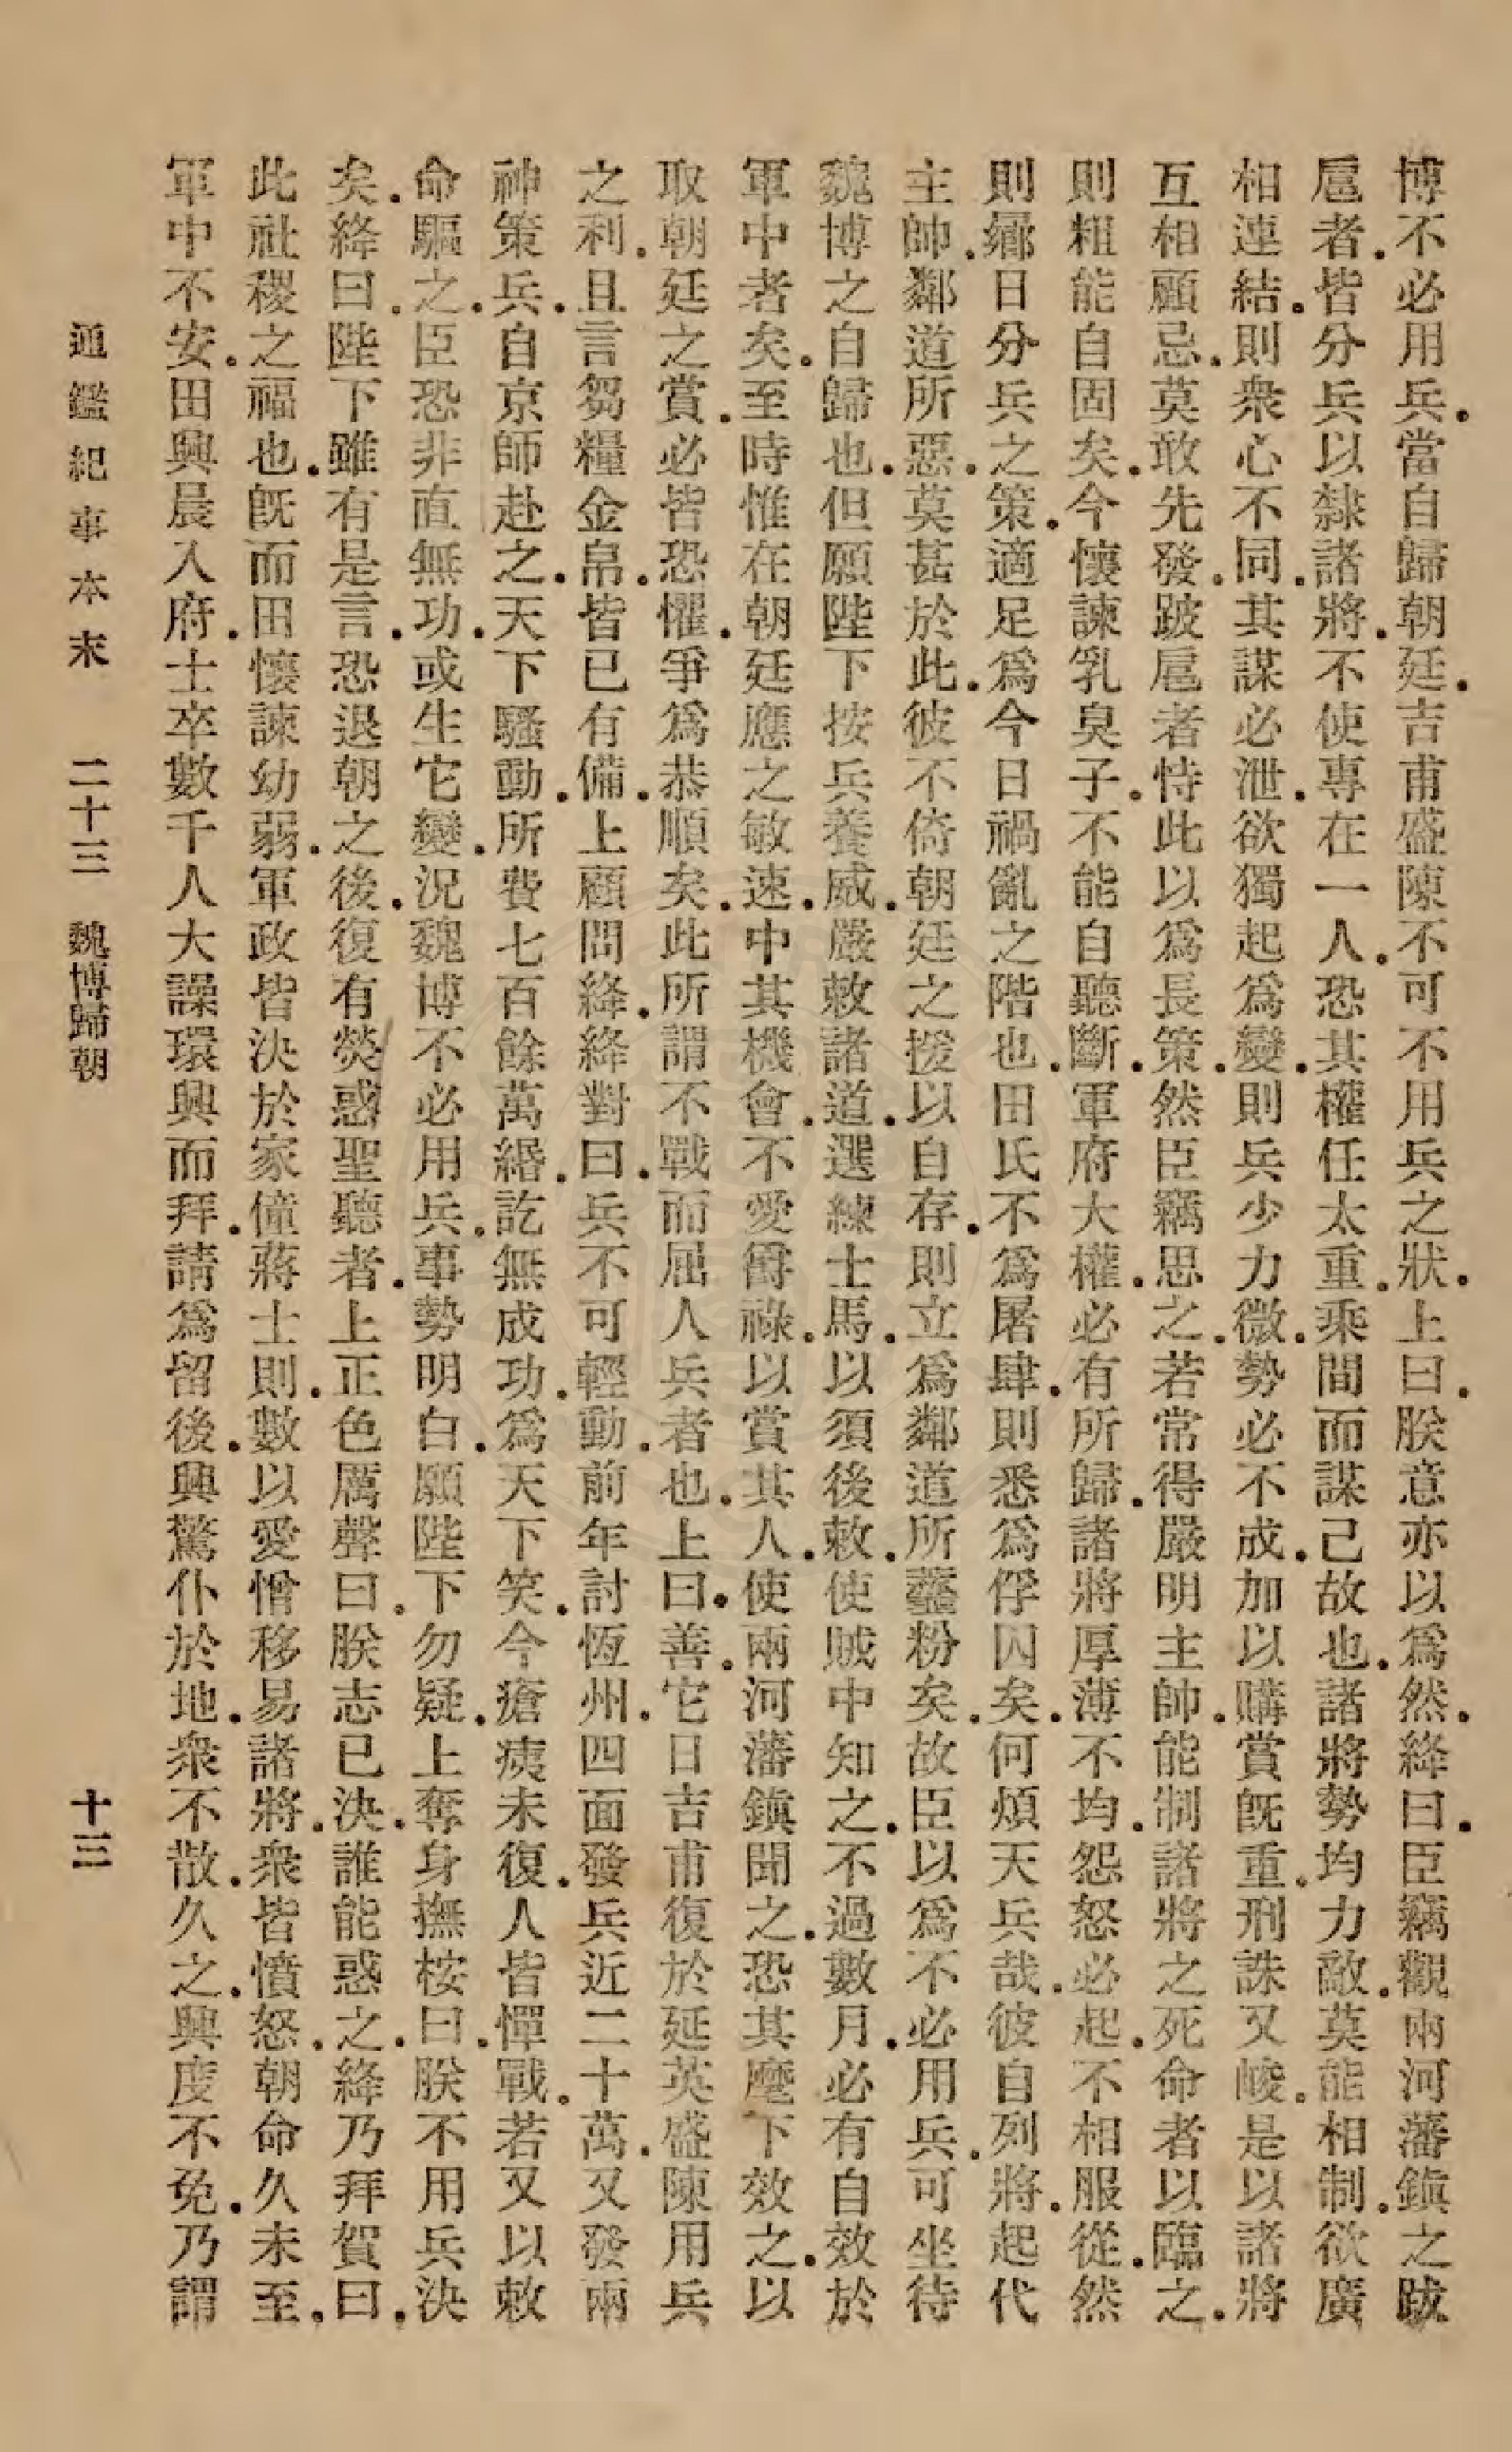 博不必用兵.當自歸朝廷.吉甫盛陳不可不用兵之狀.上曰.朕意亦以爲然.絳曰.臣竊觀兩河藩鎭之跋
扈者.皆分兵以隸諸將.不使專在一人.恐其權任太重.乘間而謀己故也.諸將勢均力敵.莫能相制.欲廣
相連結.則衆心不同.其謀必泄.欲獨起爲變.則兵少力微.勢必不成.加以購賞旣重.刑誅又峻.是以諸將
互相顧忌.莫敢先發.跛扈者恃此以爲長策.然臣竊思之.若常得嚴明主帥.能制諸將之死命者以臨之.
則粗能自固矣.今懷諫乳臭子.不能自聽斷.軍府大權.必有所歸.諸將厚薄不均.怨怒必起.不相服從.然
則曏日分兵之策.適足爲今日禍亂之階也.田氏不爲屠肆.則悉爲俘囚矣.何煩天兵哉.彼自列將.起代
主帥.鄰道所惡.莫甚於此.彼不倚朝廷之援以自存.則立爲鄰道所虀粉矣.故臣以爲不必用兵.可坐待
魏博之自歸也.但願陛下按兵養威.嚴敕諸道.選練士馬.以須後敕.使賊中知之.不過數月.必有自效於
軍中者矣.至時惟在朝廷應之敏速.中其機會.不愛爵祿.以賞其人.使兩河藩鎭聞之.恐其麾下效之.以
取朝廷之賞.必皆恐懼.爭爲恭順矣.此所謂不戰而屈人兵者也.上曰.善.它日吉甫復於延英盛陳用兵
之利.且言芻糧金帛.皆已有備.上顧問絳.絳對曰.兵不可輕動.前年討恆州.四面發兵近二十萬.又發兩
神策兵.自京師赴之.天下騷動.所費七百餘萬緡.訖無成功.爲天下笑.今瘡痍未復.人皆憚戰.若又以敕
命驅之.臣恐非直無功.或生它變.況魏博不必用兵.事勢明白.願陛下勿疑.上奪身撫桉曰.朕不用兵決
矣.絳曰.陛下雖有是言.恐退朝之後.復有熒惑聖聽者.上正色厲聲曰.朕志已決.誰能惑之.絳乃拜賀曰.
此社稷之福也.旣而田懷諫幼弱.軍政皆決於家僮蔣士則.數以愛憎移易諸將.衆皆憤怒.朝命久未至.
軍中不安.田興晨入府.士卒數千人大譟環興而拜.請爲留後.興驚仆於地.衆不散.久之.興度不免.乃謂
通鑑紀事本末 二十三 魏博歸朝 十三